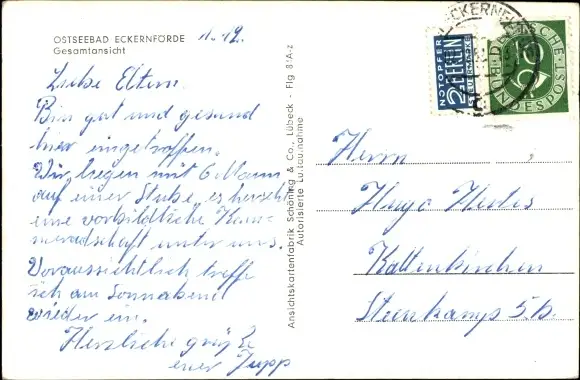 OSTSEEBAD ECKERNFÖRDE
Gesamtansicht
Liebe Eltern.
Bin gut und gesund
hier eingetroffen.
Wir liegen mit 6 Mann
auf einer Stube, es herscht
eine vorbildliche Kam-
meradschaft unter uns.
Voraussichtlich treffe
ich am Sonnabend
wieder ein.
Herzliche grüße
euer Jupp
Ansichtskartenfabrik Schöning & Co., Lübeck - Flg 81A-z
Autorisierte Luftaufnahme
NOTOPFER
2 BERLIN
STEUERMARKE
ECKERNF
DEUTSCHE
BUNDESPOST
10
Herrn
Hugo
Kaltenkirchen
Steenkamp 5b.